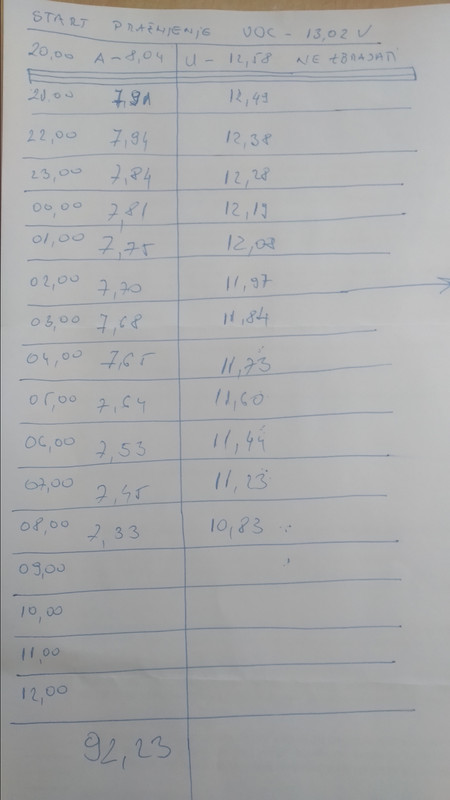 START PRAŽNJENJE UOC - 13,02 V
20,00 A - 8,04 U - 12,58 NE ZBRAJATI
21.00 7,91 12,49
22,00 7,94 12,38
23,00 7,84 12,28
00,00 7,81 12,19
01,00 7,75 12,08
02,00 7,70 11,97
03,00 7,68 11,84
04,00 7,65 11,73
05,00 7,64 11,60
06,00 7,53 11,44
07,00 7,45 11,23
08,00 7,33 10,83
09,00
10,00
11,00
12,00
92,23